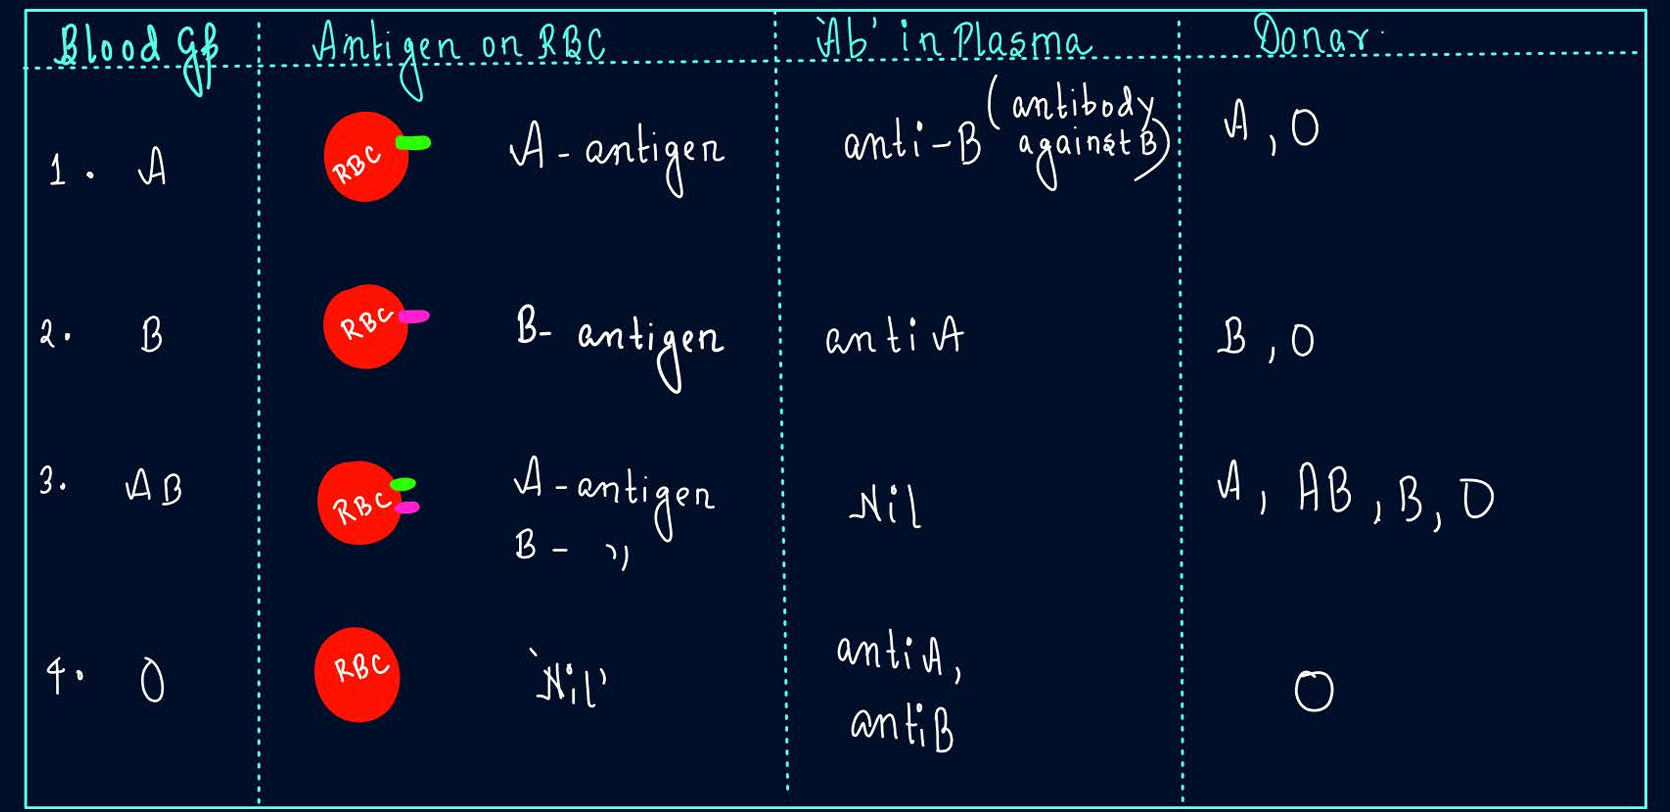 Blood Gp Antigen on RBC 'Ab' in Plasma Donar
1. A RBC A - antigen anti-B (antibody against B) A, O
2. B RBC B- antigen anti A B, O
3. AB RBC A - antigen Nil A, AB, B, O
B - ,,
4. O RBC 'Nil' anti A, O
anti B